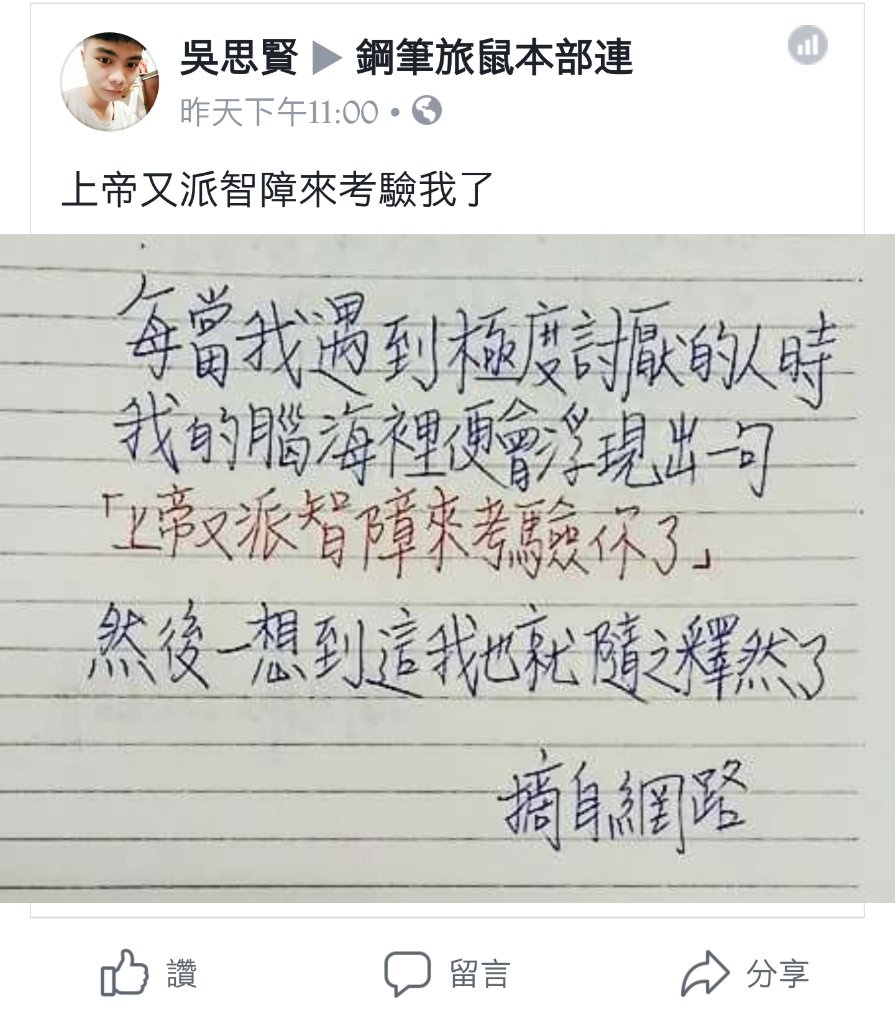 吳思賢 ▶ 鋼筆旅鼠本部連
昨天下午11:00 •
上帝又派智障來考驗我了
每當我遇到極度討厭的人時
我的腦海裡便會浮現出一句
「上帝又派智障來考驗你了」
然後一想到這我也就隨之釋然了
摘自網路
讚 留言 分享